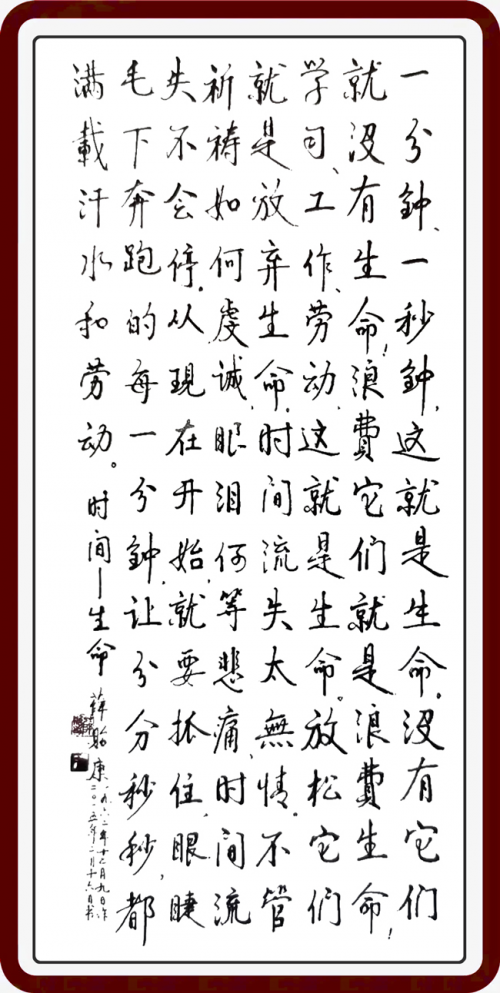 一分钟、一秒钟,这就是生命。没有它们
就没有生命,浪費它们就是浪費生命!
学习、工作、劳动,这就是生命。放松它们
就是放弃生命,时间流失太無情。不管
祈祷如何虔诚,眼泪何等悲痛,时间流
失不会停。从現在开始,就要抓住,眼睫
毛下奔跑的每一分钟,让分分秒秒,都
满載汗水和劳动。时间—生命 薛貽康
一九六二年十二月九日作
二〇一五年二月十六日书